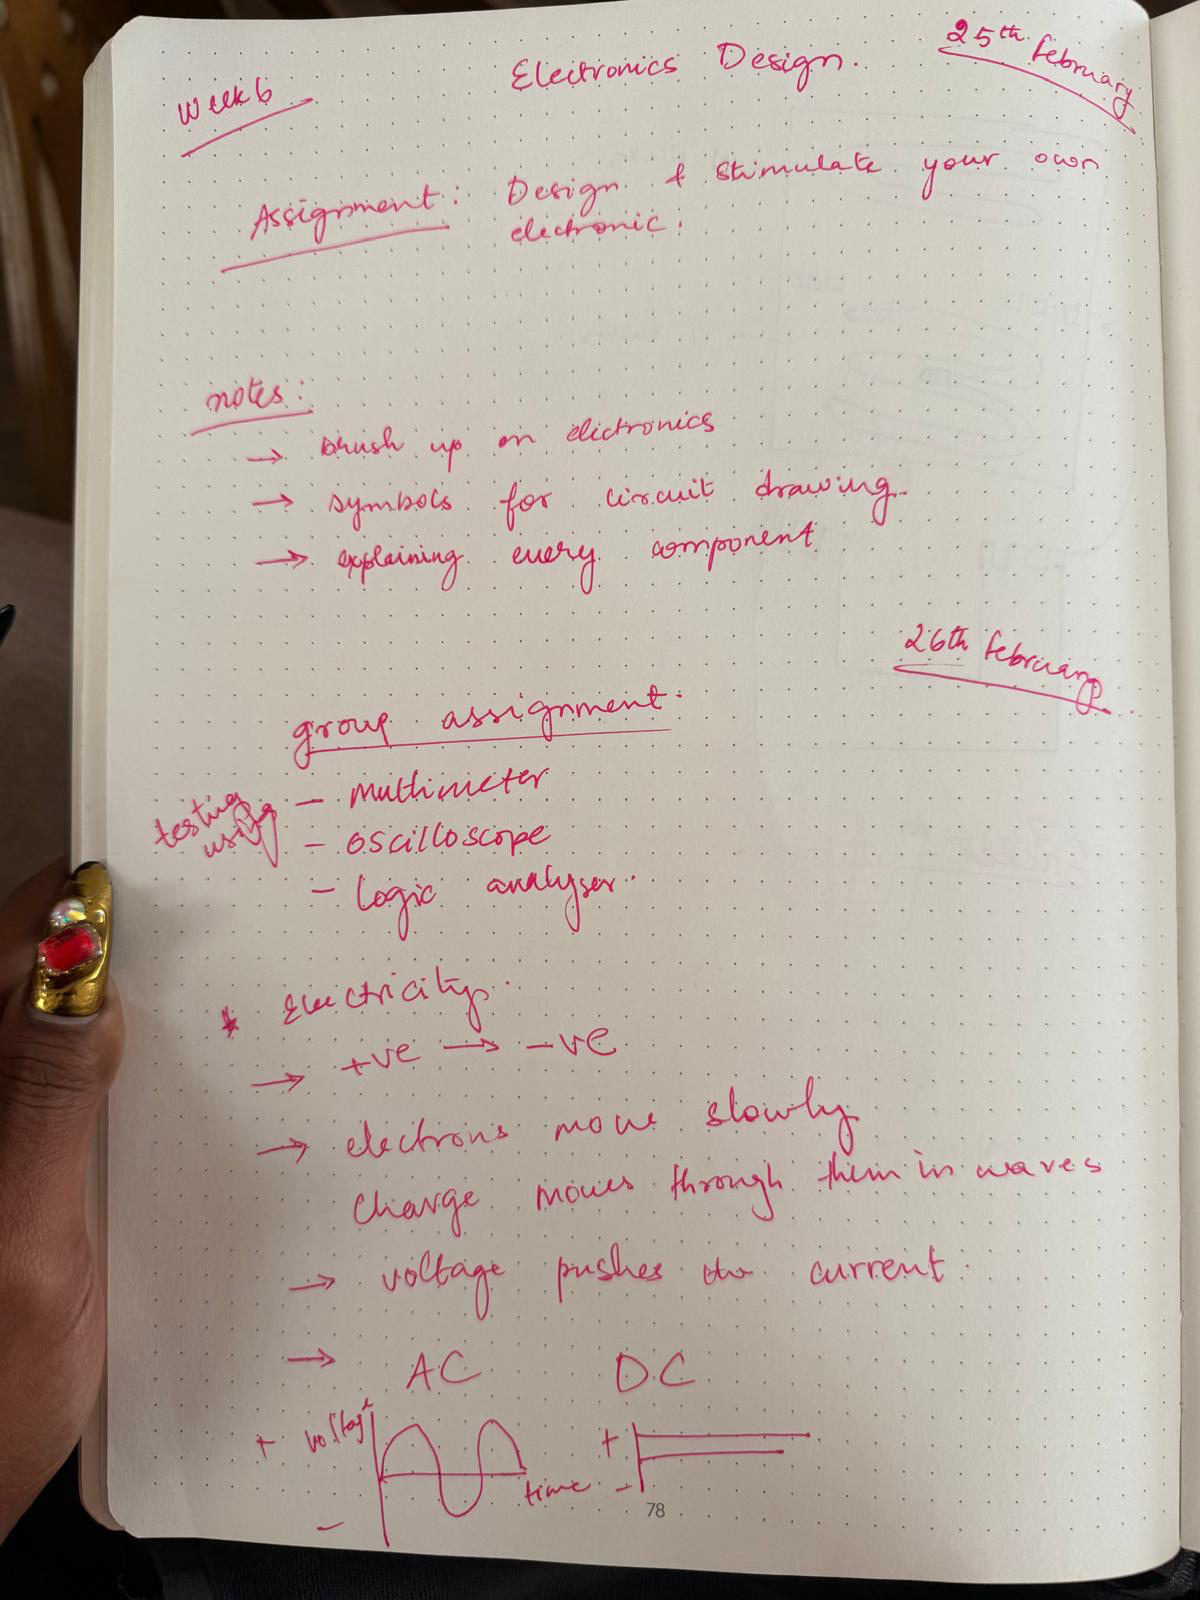 Week 6
Electronics Design.
25th February
Assignment: Design & stimulate your own
electronic.
notes:
→ brush up on electronics
→ symbols for circuit drawing.
→ explaining every component
26th February
group assignment.
testing using
- multimeter
- oscilloscope
- logic analyser.
* Electricity.
→ +ve → -ve
→ electrons move slowly
Charge moves through them in waves
→ voltage pushes the current.
→ AC DC
+ voltage
time
-
+
-
78